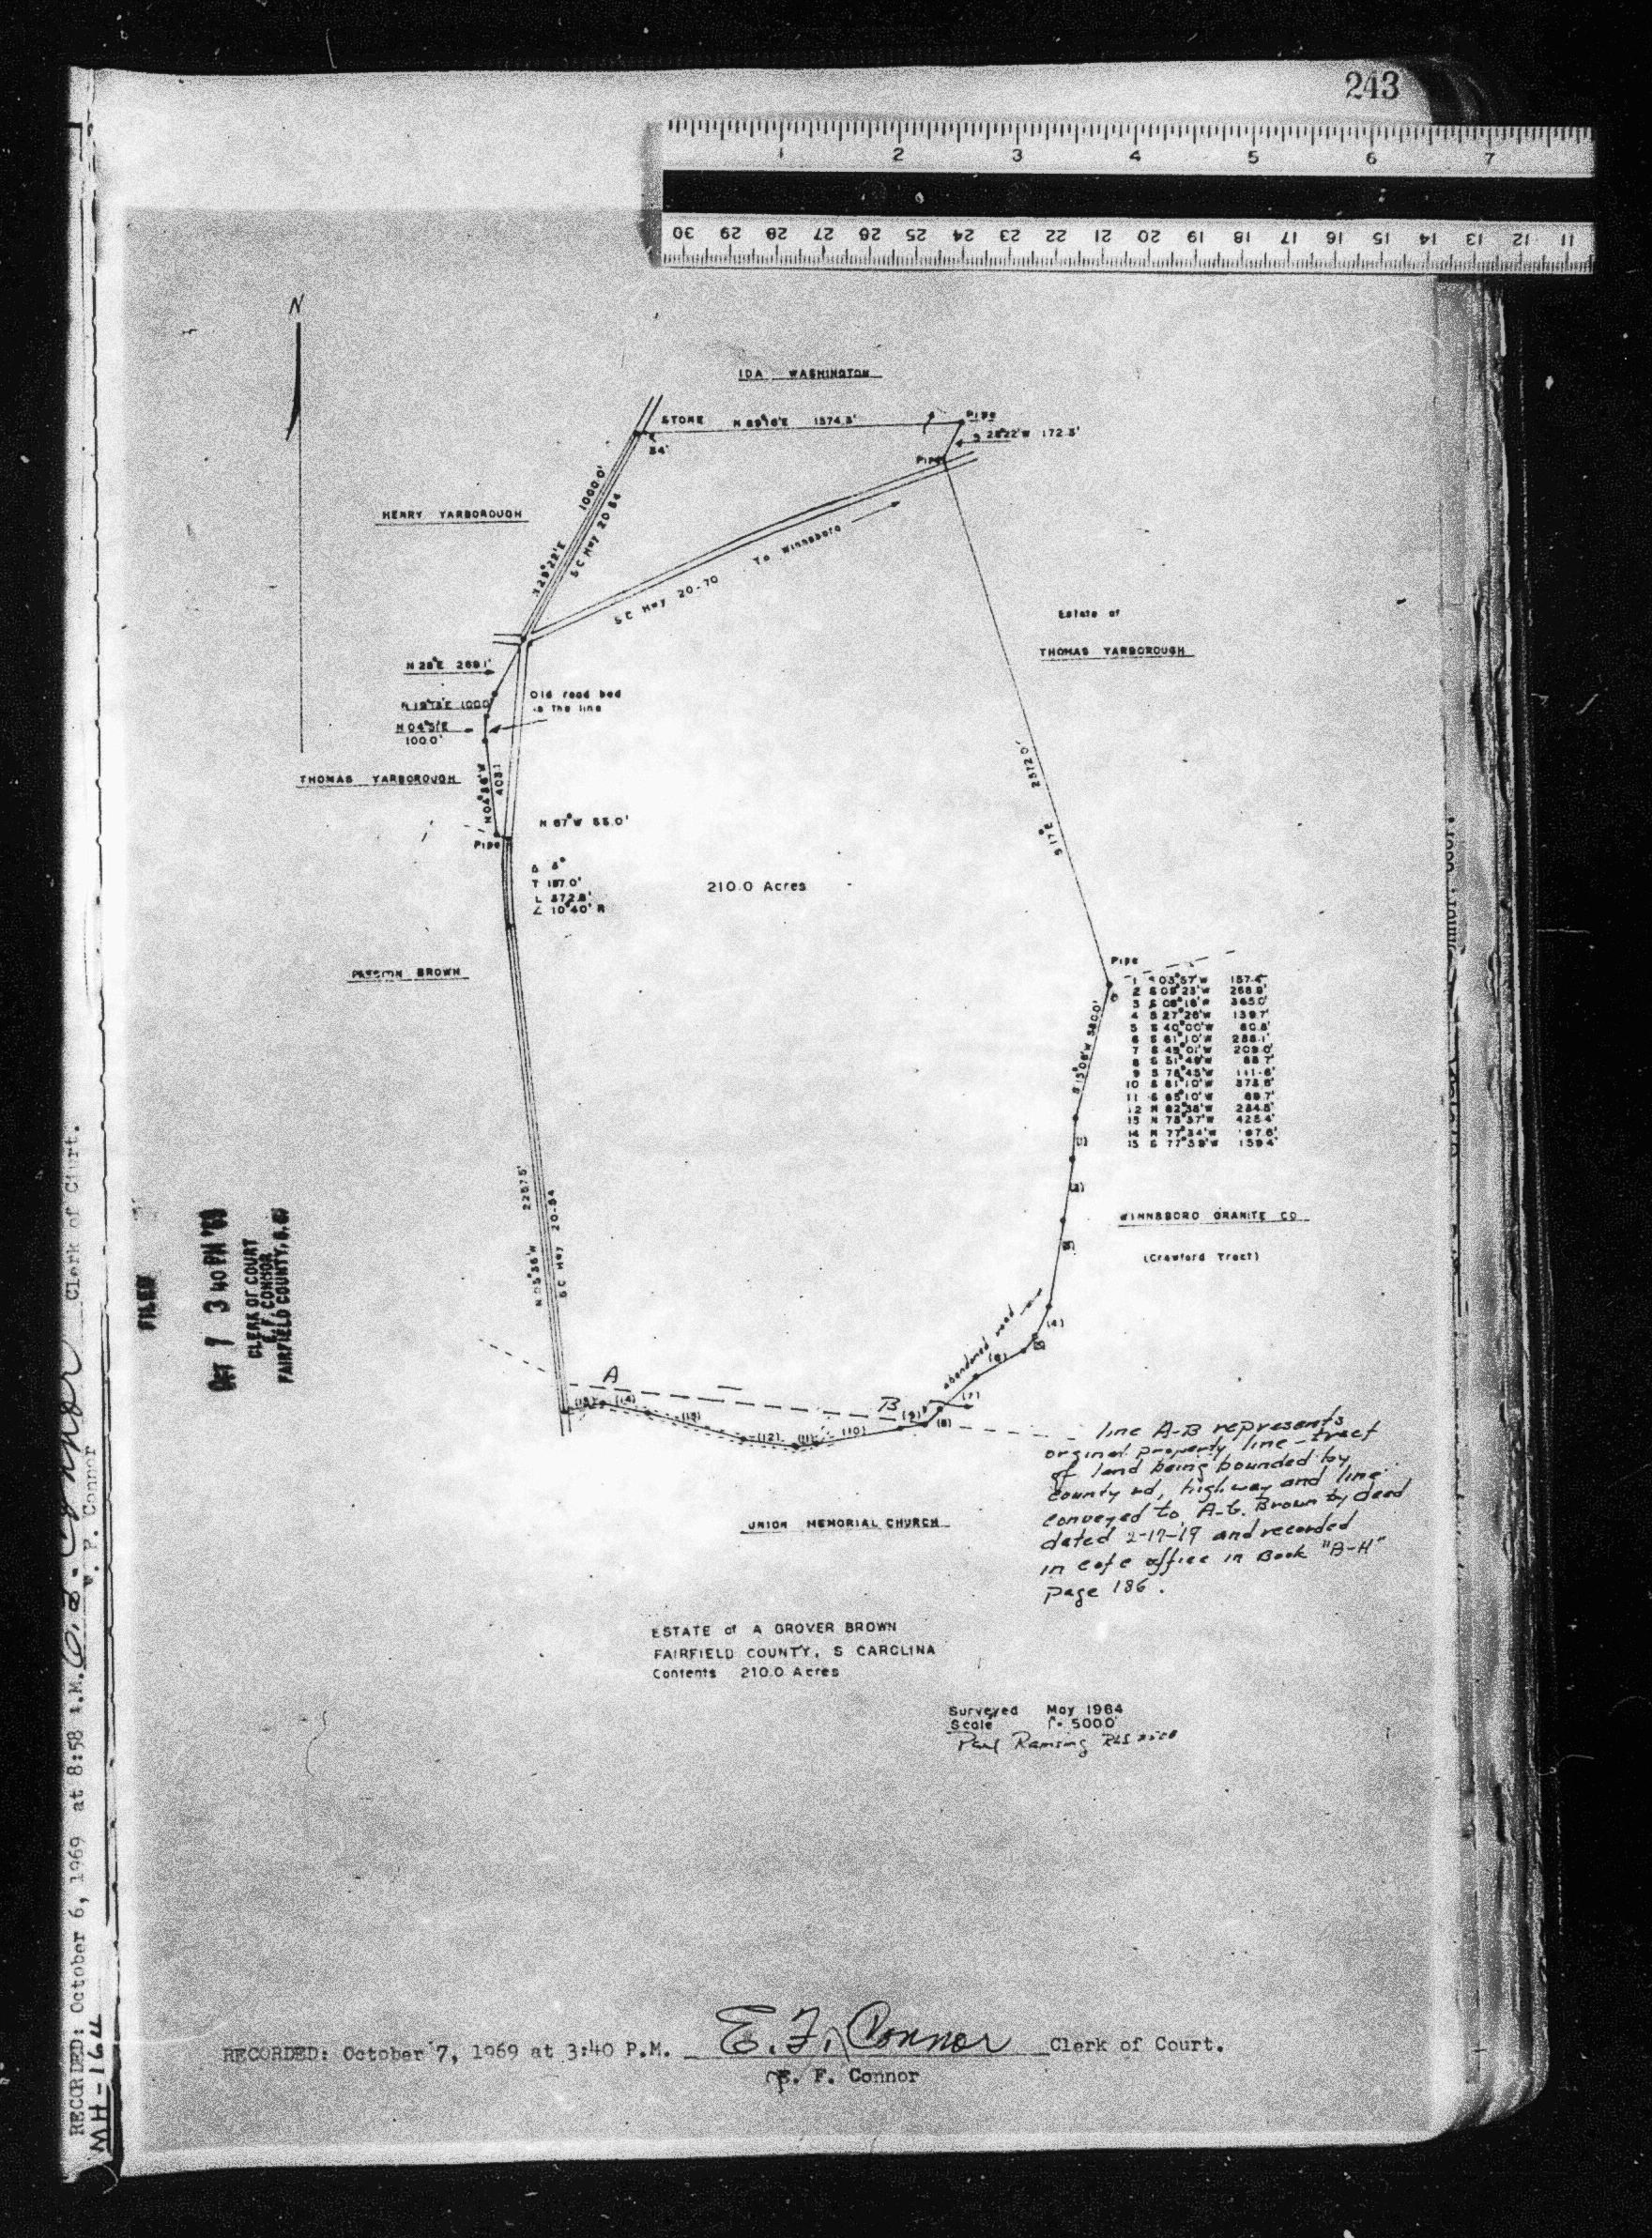 243
1 2 3 4 5 6 7
30 29 28 27 26 25 24 23 22 21 20 19 18 17 16 15 14 13 12 11
N
IDA WASHINGTON
STONE N 89°16'E 1574.3'
Pipe
S 28°22'W 172.3'
34'
Pipe
HENRY YARBOROUGH
1000.0'
SC Hwy 20-54
To Winnsboro
SC Hwy 20-70
Estate of
THOMAS YARBOROUGH
N 28°E 269.1'
Old road bed
is the line
N 04°51'E
100.0'
THOMAS YARBOROUGH
N 04°56'W
403.1
2572.0'
S 17°E
N 67°W 55.0'
Pipe
T 187.0'
L 372.8'
∠ 10°40' R
210.0 Acres
BROWN
Pipe
S 15°06'W 580.0'
1 S 03°57'W 157.4'
2 S 09°23'W 268.9'
3 S 08°16'W 365.0'
4 S 27°26'W 139.7'
5 S 40°00'W 80.8'
6 S 61°10'W 288.1'
7 S 45°01'W 209.0'
8 S 51°49'W 88.7'
9 S 76°45'W 111.6'
10 S 81°10'W 373.6'
11 S 65°10'W 89.7'
12 N 82°38'W 234.5'
13 N 73°37'W 425.4'
14 N 77°34'W
15 S 77°39'W 159.4'
2257.5'
SC Hwy 20-54
WINNSBORO GRANITE CO
(Crawford Tract)
(1)
(2)
(3)
(4)
(5)
abandoned road
(6)
(7)
A
B
(15) (14) (13) (12) (11) (10) (9) (8)
line A-B represents
orginal property line - tract
of land being bounded by
county rd, highway and line
conveyed to A.G. Brown by deed
dated 2-17-19 and recorded
in cofc office in Book "A-H"
page 186.
UNION MEMORIAL CHURCH
ESTATE of A GROVER BROWN
FAIRFIELD COUNTY, S CAROLINA
Contents 210.0 Acres
Surveyed May 1964
Scale 1"= 500.0'
Paul Ramsing RLS
FILED
OCT 7 3 40 PM '69
CLERK OF COURT
E. F. CONNOR
FAIRFIELD COUNTY, S.C.
RECORDED: October 6, 1969 at 8:58 A.M. Clerk of Court.
F. Connor
MH-164
RECORDED: October 7, 1969 at 3:40 P.M. E. F. Connor Clerk of Court.
E. F. Connor